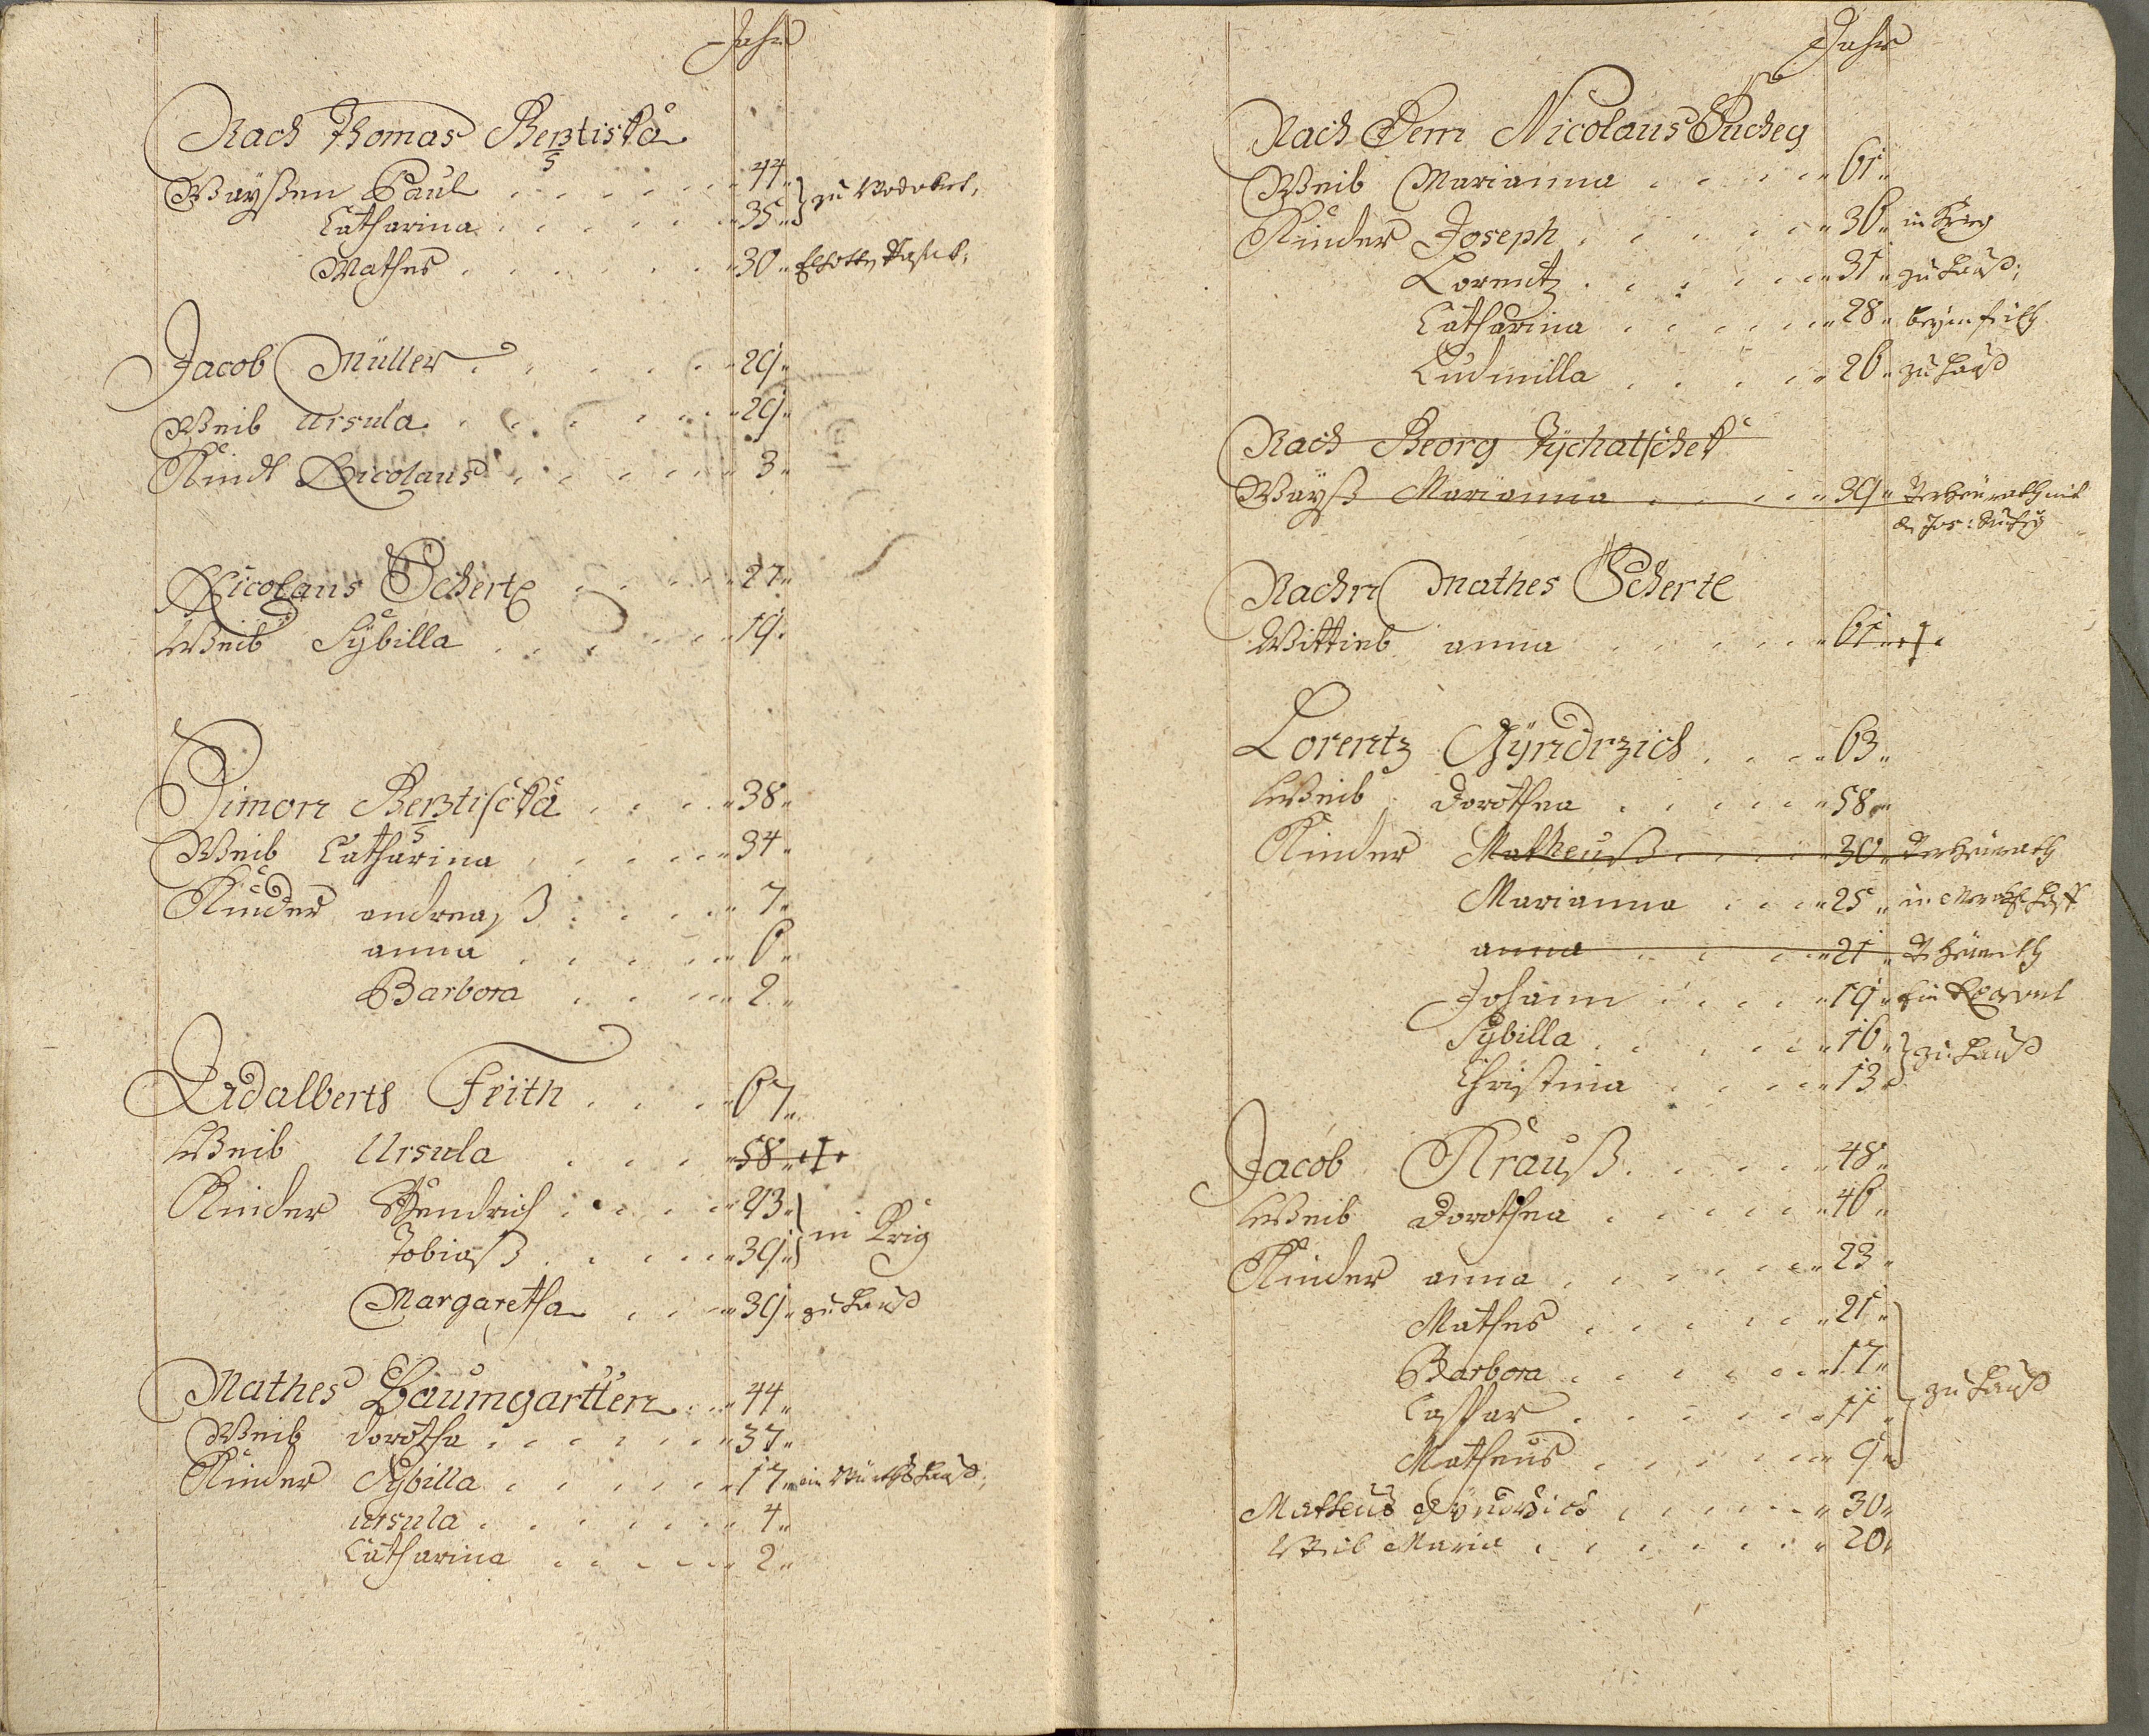 Jahr
Nach Thomas Berztiska
5
Wayßen Paul 44
Catharina 35 zu
Mathes 30
Jacob Müller 29
Weib Ursula 29
Kindt Nicolaus 3
Nicolaus Scherte 27
Weib Sÿbilla 19
Simon Berztischka 38
5
Weib Catharina 34
Kinder andreaß 7
anna 6
Barbora 2
Adalberth Frith 67
Weib Ursula 58
Kinder Hendrich 43
Tobiaß 39 in Krig
Margaretha 39 zu Hauß
Mathes Baumgartten 44
Weib dorotha 37
Kinder Sÿbilla 17
ursula 4
Catharina 2
Jahr
Nach Dem Nicolaus Sucheÿ
Weib Marianna 61
Kinder Joseph 36 in Krig
Lorentz 31 zu Hauß
Catharina 28
Ludmilla 26 zu Hauß
Nach Georg Tÿchatschek
Wayß Marianna 39 Verheÿrath mit
Jos: Suchÿ
Nachn Mathes Scherte
Wittieb anna 61
Lorentz Gÿndrzich 63
Weib Dorothea 58
Kinder Matheuß 30 Verheirath
Marianna 25 in
anna 21
Johann 19
Sÿbilla 16
Christina 13 zu Hauß
Jacob Krauß 48
Weib Dorothea 46
Kinder anna 23
Mathes 21
Barbora 17
Caspar 11 zu Hauß
Matheus 9
Matheus Gÿndrzich 30
Weib Maria 20